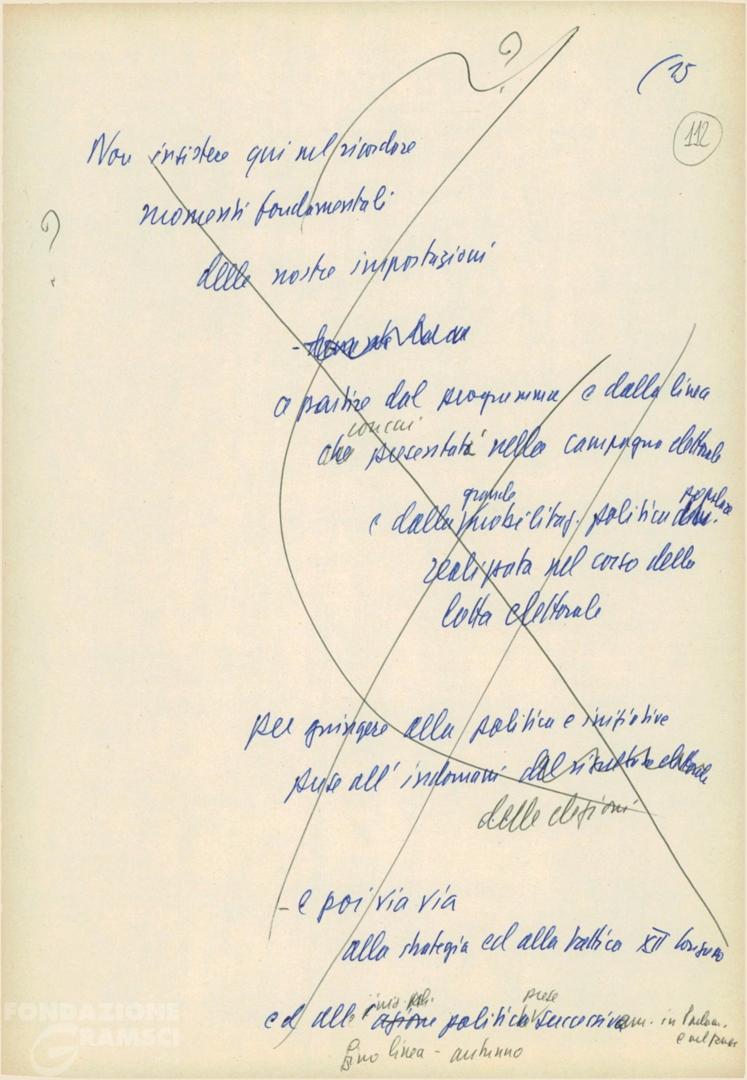 (25
112
?
Non insistere qui nel ricordare
momenti fondamentali
?
delle nostre impostazioni
a partire dal programma e dalla linea
con cui
che presentati nella campagna elettorale
grande popolare
e dalla mobilitaz. politica
realizzata nel corso della
lotta elettorale
per giungere alla politica e iniziative
prese all'indomani del risultato elettorale
delle elezioni
- e poi via via
alla strategia ed alla tattica XII Congresso
iniz. prese
ed alle azione politica successiva in Parlam.
e nel Paese
Fino linea - autunno
FONDAZIONE
GRAMSCI